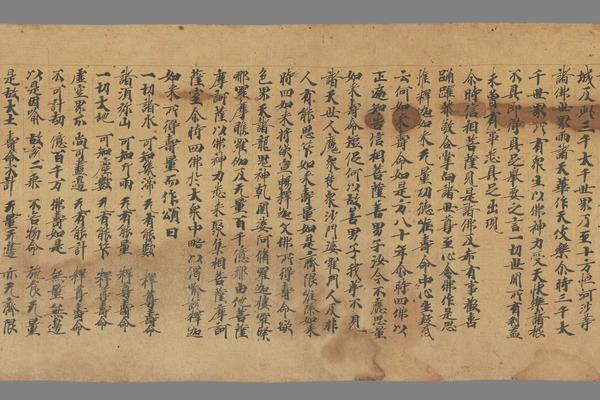 城及此三千大千世界乃至十方恒河沙等
諸佛世界雨諸天華作天伎樂尒時三千大
千世界所有衆生以佛神力受天快樂諸根
不具即得具足舉要之言一切世間所有利益
未曾有事悉具出現
尒時信相菩薩見是諸佛及希有事歡喜
踊躍恭敬合掌向諸世尊至心念佛作是思
惟釋迦如來无量功德唯壽命中心生疑惑
云何如來壽命如是方八十年尒時四佛以
正遍知告信相菩薩善男子汝今不應思量
如來壽命短促何以故善男子我等不見
諸天世人魔衆梵衆沙門婆羅門人及非
人有能思筭如來壽量如是齊限唯除如來
時四如來將欲宣暢釋迦文佛所得壽命欲
色界天諸龍鬼神乹闥婆阿脩羅迦樓羅緊
那羅摩睺羅伽及无量百千億那由他菩薩
摩訶薩以佛神力悉來聚集信相菩薩摩訶
薩室尒時四佛於大衆中略以偈喻說釋迦
如來所得壽量而作頌曰
一切諸水 可知幾渧 无有能數 釋尊壽命
諸須弥山 可知斤兩 无有能量 釋尊壽命
一切大地 可知塵數 无有能筭 釋尊壽命
虛空界分 尚可盡邊 无有能計 釋尊壽命
不可計劫 億百千万 佛壽如是 无量无邊
以是因緣 故說二乘 不害物命 施食无量
是故大士 壽命不計 无量无邊 亦无齊限